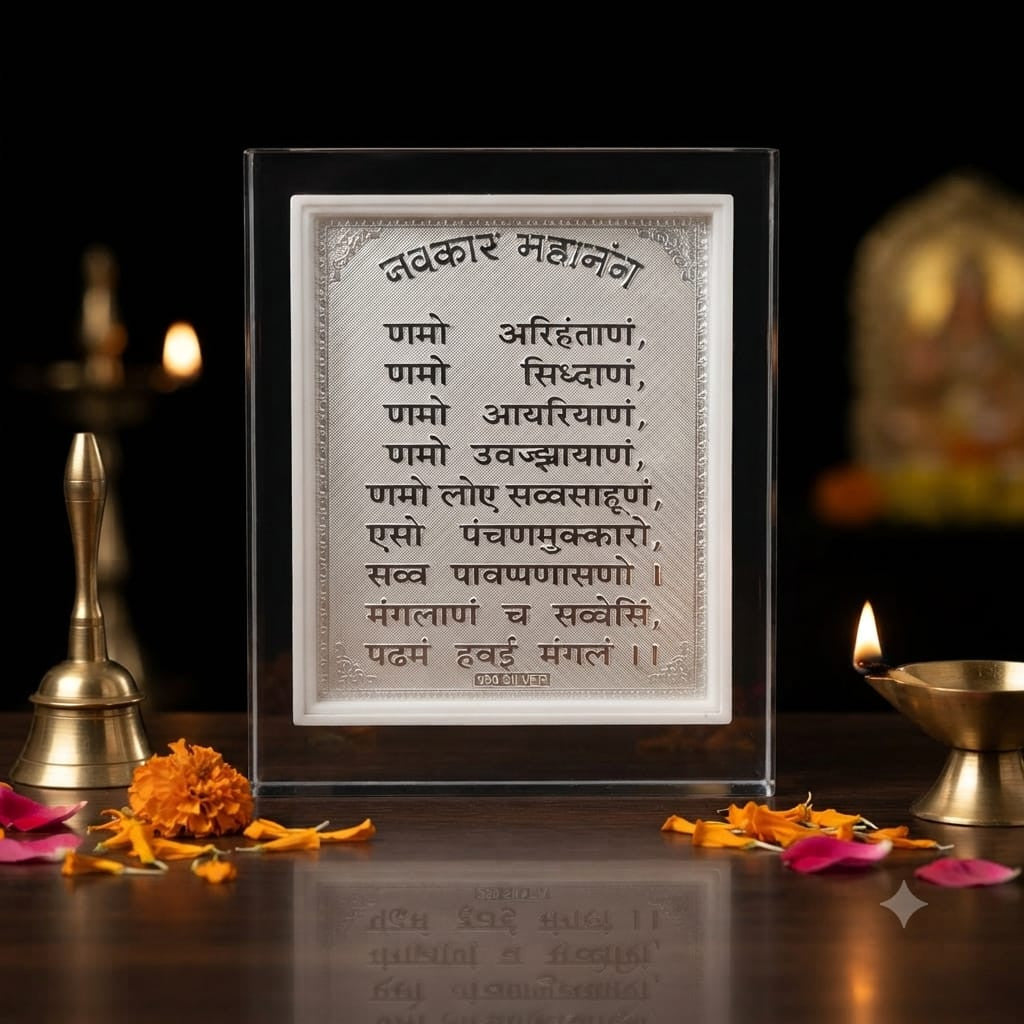 जवकार महानंग
णमो अरिहंताणं,
णमो सिध्दाणं,
णमो आयरियाणं,
णमो उवज्झायाणं,
णमो लोए सव्वसाहूणं,
एसो पंचणमुक्कारो,
सव्व पावप्पणासणो ।
मंगलाणं च सव्वेसिं,
पढमं हवई मंगलं ।।